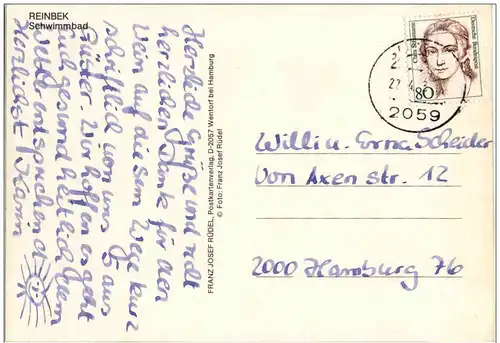 REINBEK
Schwimmbad
Herzliche Grüße und
herzlichen Dank für den
Wein auf diesem Wege kurz
schriftlich von uns aus
Wir hoffen es geht
Euch gesundheitlich
Herzlichst
FRANZ JOSEF RÜDEL, Postkartenverlag, D-2057 Wentorf bei Hamburg
© Foto: Franz Josef Rüdel
Clara Schumann
Deutsche Bundespost
80
2059
Willi u. Erna Scheider
Von Axen str. 12
2000 Hamburg 76